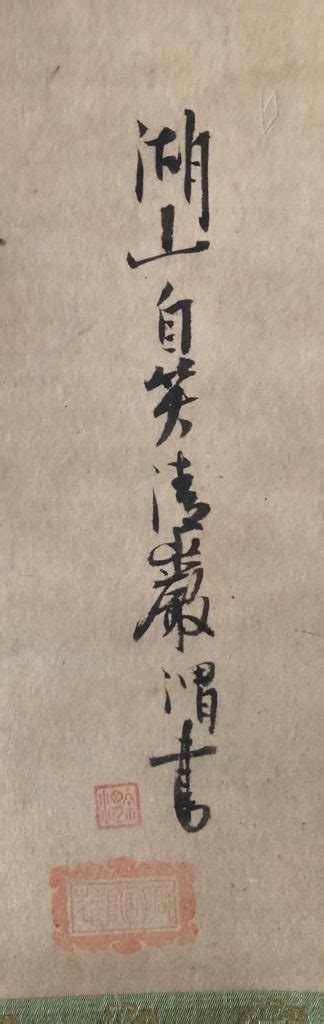 湖上自笑清巖渭書